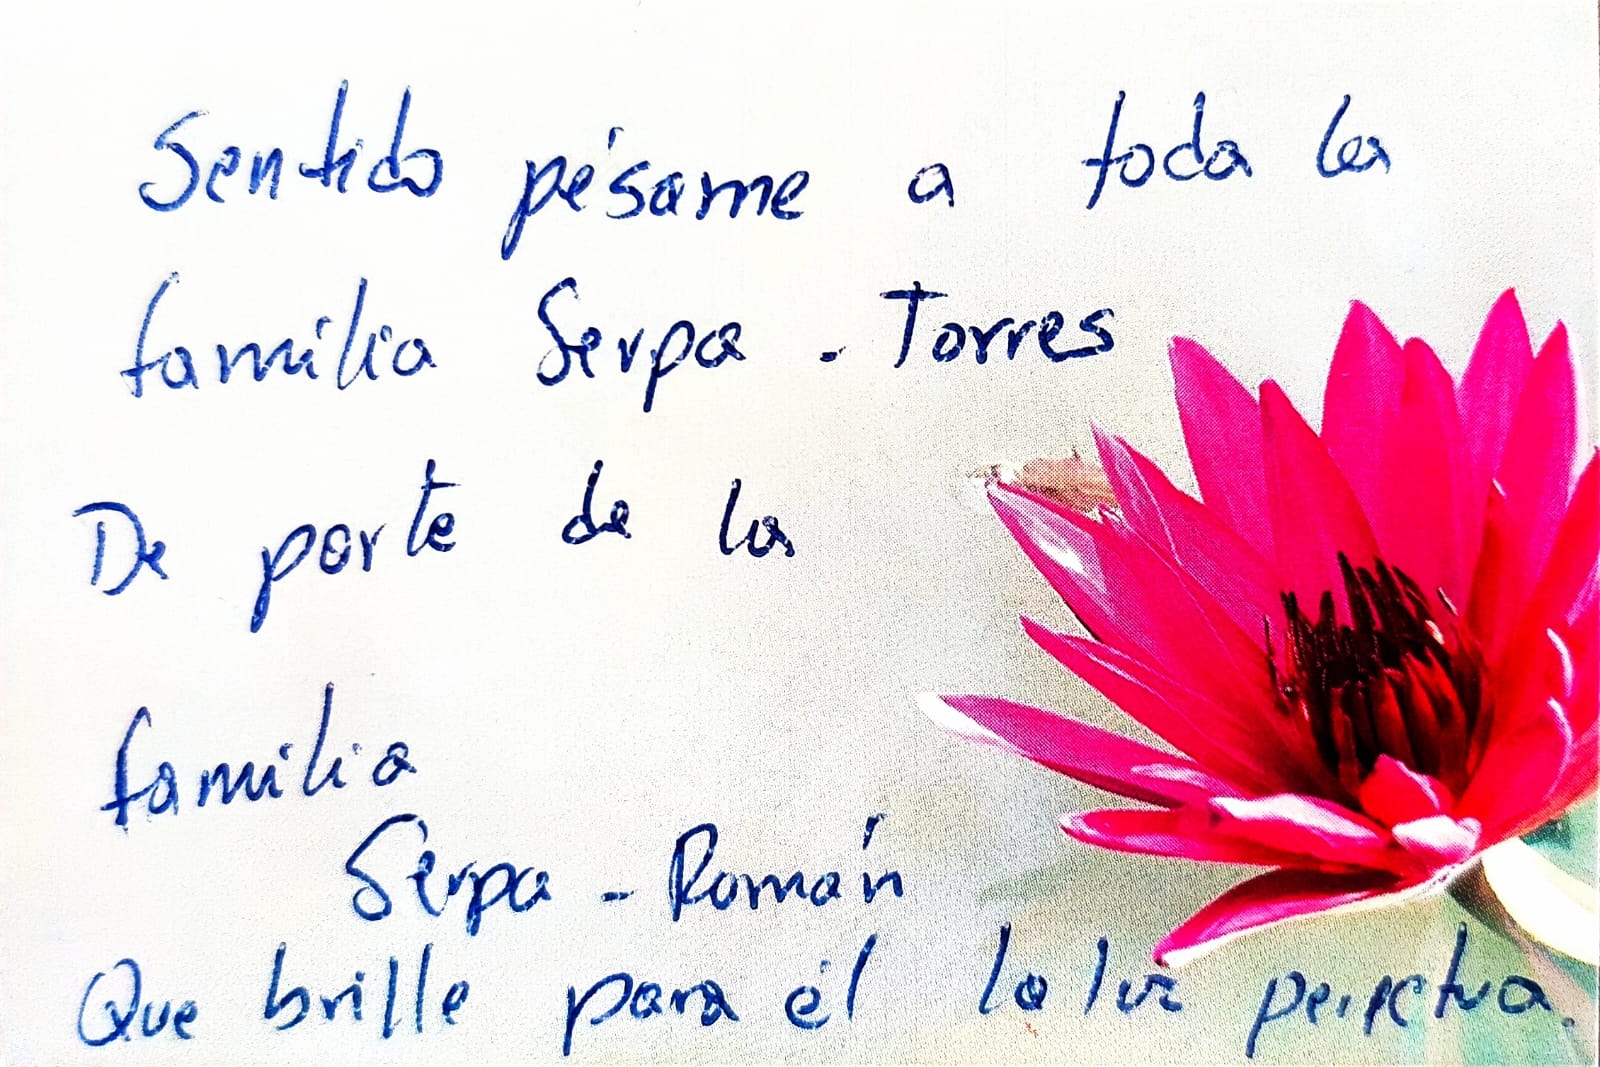 Sentido pésame a toda la
familia Serpa - Torres
De parte de la
familia
Serpa - Román
Que brille para él la luz perpetua.